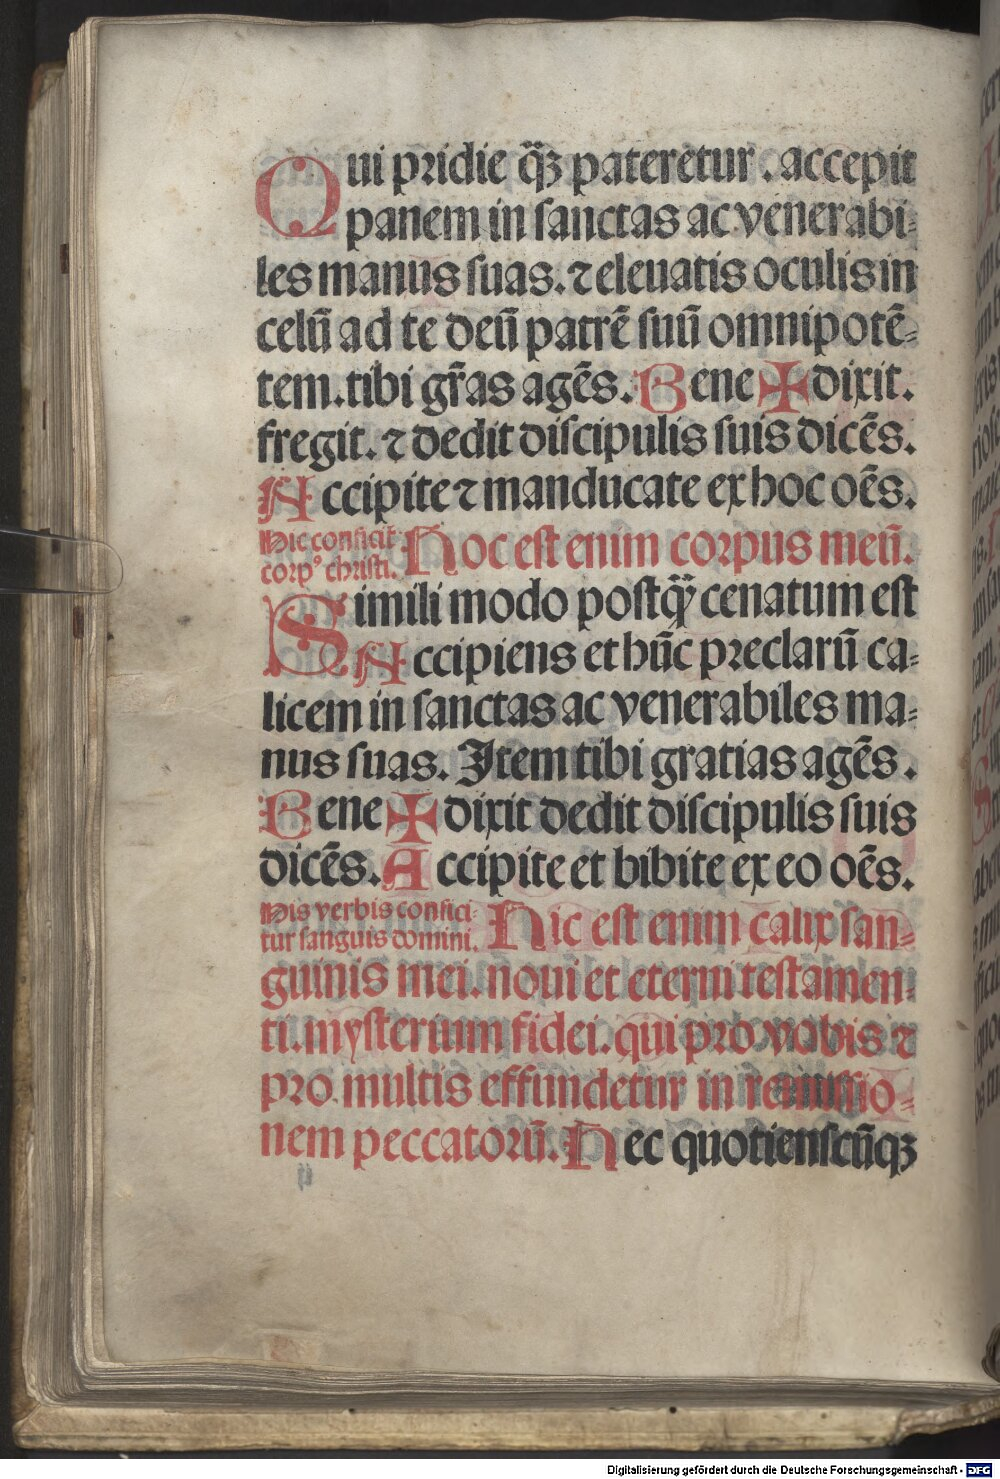 Qui pridie q̃ꝫ pateretur. accepit
panem in sanctas ac venerabi-
les manus suas. ⁊ eleuatis oculis in
celū ad te deū patrē suū omnipotē-
tem. tibi gr̄as agēs. Bene ✠ dixit.
fregit. ⁊ dedit discipulis suis dicēs.
Accipite ⁊ manducate ex hoc oēs.
Hic conficit̄
corpꝰ christi.
Hoc est enim corpus meū.
Simili modo postq̄ꝫ cenatum est
Accipiens et hūc preclarū ca-
licem in sanctas ac venerabiles ma-
nus suas. Item tibi gratias agēs.
Bene ✠ dixit dedit discipulis suis
dicēs. Accipite et bibite ex eo oēs.
His verbis confici-
tur sanguis domini.
Hic est enim calix san-
guinis mei. noui et eterni testamen-
ti. mysterium fidei. qui pro vobis ⁊
pro multis effundetur in remissio-
nem peccatorū. Hec quotienscūqꝫ
Digitalisierung gefördert durch die Deutsche Forschungsgemeinschaft - DFG